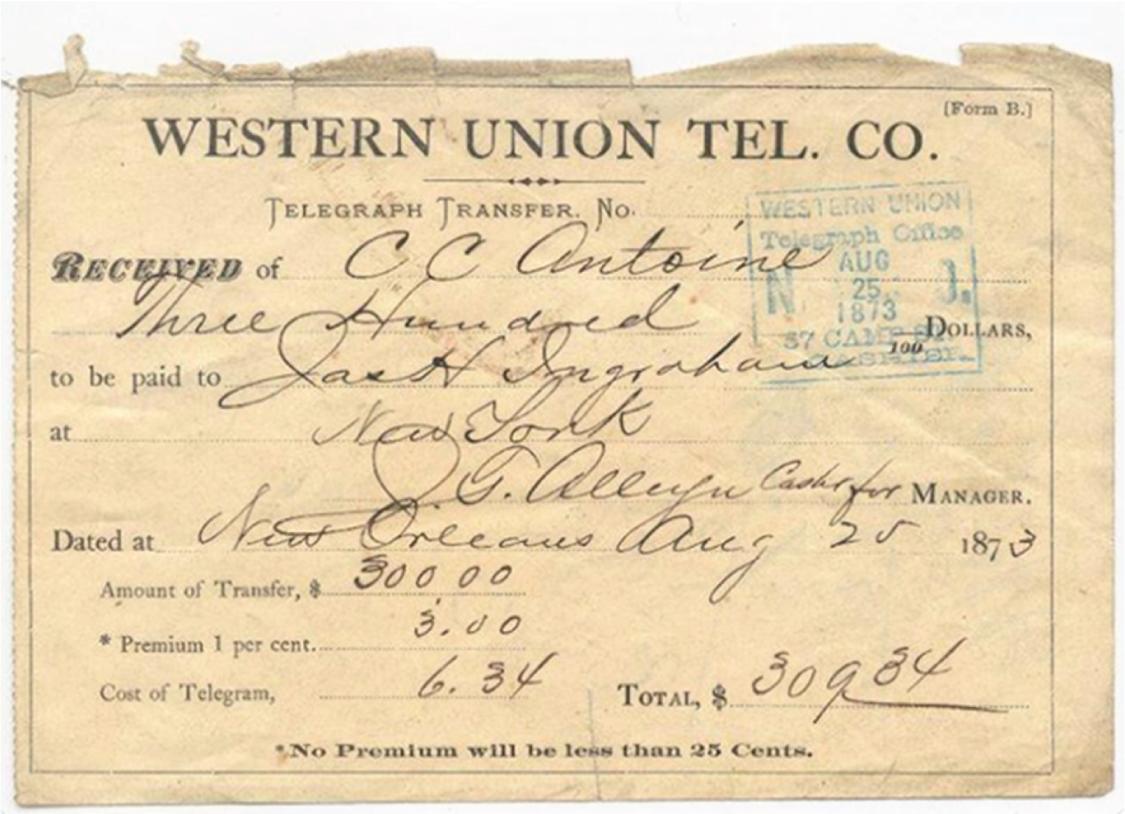 [Form B.]
WESTERN UNION TEL. CO.
TELEGRAPH TRANSFER. No.
RECEIVED of C C Antoine
Three Hundred DOLLARS,
100
to be paid to Jas H Ingraham
at New York
J. G. Alleyn Cashr for MANAGER.
Dated at New Orleans Aug 25 1873
Amount of Transfer, $ 300.00
* Premium 1 per cent. 3.00
Cost of Telegram, 6.34 TOTAL, $ 309 34
*No Premium will be less than 25 Cents.
WESTERN UNION
Telegraph Office
AUG
N 25 O.
1873
57 CAMP ST.
CASHIER.